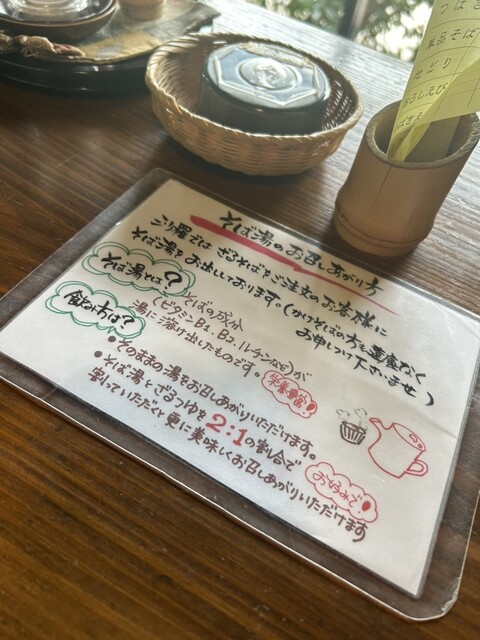 つばき
単品そば
せどり
おろしえび
そば湯のお召しあがり方
ざるそばをご注文のお客様に
そば湯をお出ししております。(かけそばの方も遠慮なく
お申しつけ下さいませ)
そば湯とは?
そばの成分
(ビタミンB1、B2、ルチンなど)が
湯に溶け出したものです。
栄養豊富!
飲み方は?
●そのままの湯をお召しあがりいただけます。
●そば湯とざるつゆを2:1の割合で
割っていただくと更に美味しくお召しあがりいただけます
お好みで!